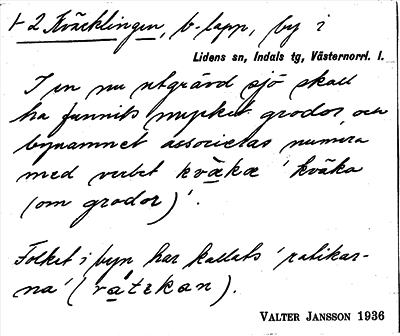 + 2 Kväcklingen, b-lapp, by i
Lidens sn, Indals tg, Västernorrl. l.
I en nu utgrävd sjö skall
ha funnits mycket grodor och
bynamnet associeras numera
med verbet kväka 'kväka
(om grodor)'.
Folket i byn har kallats 'ratikar-
na' (
VALTER JANSSON 1936